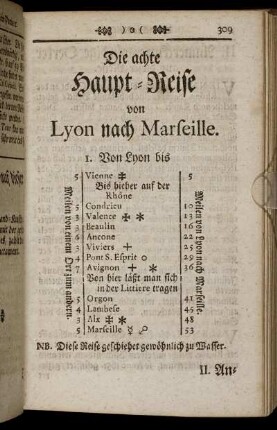 ) o ( 309
Die achte
Haupt-Reise
von
Lyon nach Marseille.
1. Von Lyon bis
Meilen von einem Ort zum andern.
Meilen von Lyon nach Marseille.
5 Vienne ⁜ 5
Bis hieher auf der
Rhône
5 Condrieu 10
3 Valence ⁜ * 13
3 Beaulin 16
6 Ancone 22
3 Viviers + 25
4 Pont S. Esprit ○ 29
7 Avignon + * 36
Von hier läßt man sich
in der Littiere tragen
5 Orgon 41
4 Lambese 45
3 Aix ⁜ * 48
5 Marseille ☿ 53
NB. Diese Reise geschiehet gewöhnlich zu Wasser.
II. An-